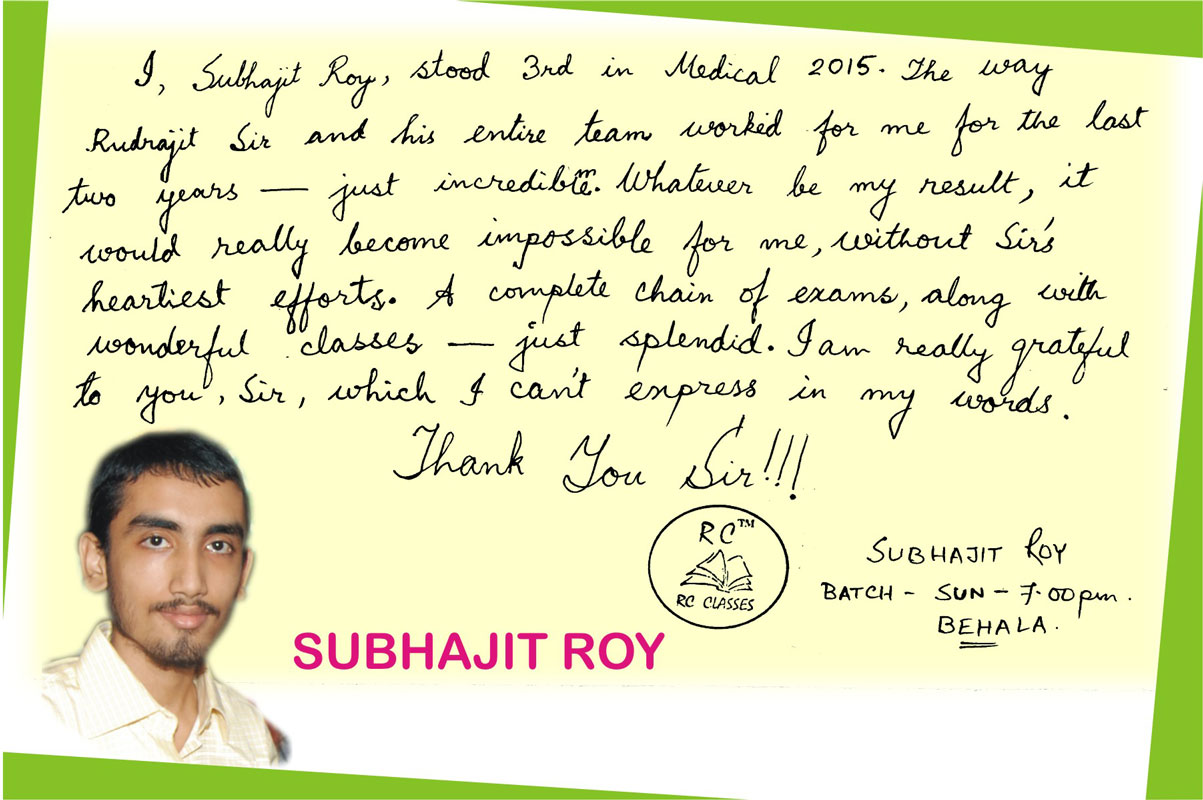 I, Subhajit Roy, stood 3rd in Medical 2015. The way
Rudrajit Sir and his entire team worked for me for the last
two years — just incredible. Whatever be my result, it
would really become impossible for me, without Sir's
heartiest efforts. A complete chain of exams, along with
wonderful classes — just splendid. I am really grateful
to you, Sir, which I can't express in my words.
Thank You Sir!!!
RC™
RC CLASSES
SUBHAJIT ROY
BATCH - SUN - 7.00pm.
BEHALA.
SUBHAJIT ROY